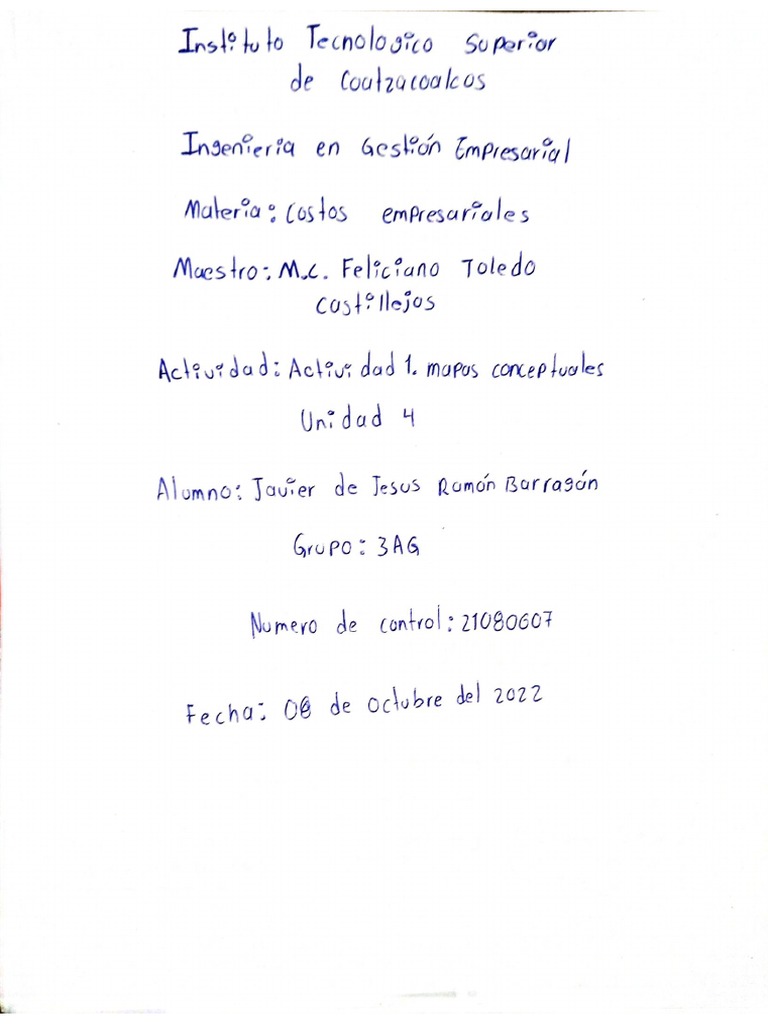 Instituto Tecnologico Superior
de Coatzacoalcos
Ingenieria en Gestión Empresarial
Materia: Costos empresariales
Maestro: M.C. Feliciano Toledo
Castillejos
Actividad: Actividad 1. mapas conceptuales
Unidad 4
Alumno: Javier de Jesus Ramón Barragán
Grupo: 3AG
Numero de control: 21080607
Fecha: de octubre del 2022